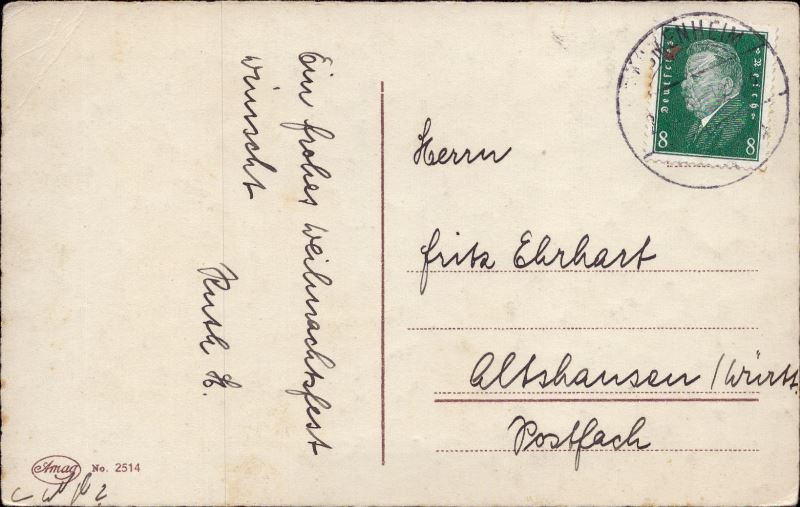 Ein frohes Weihnachtsfest
wünscht
Ruth H.
Herrn
Fritz Ehrhart
Altshausen/Württ.
Postfach
Deutsches Reich
8 8
Amag No. 2514